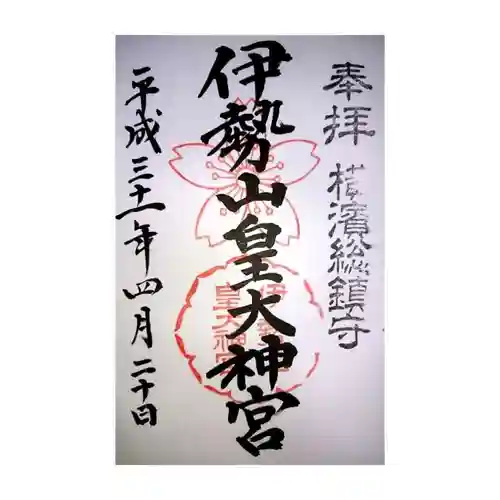 奉拝
横濱総鎮守
伊勢山皇大神宮
伊勢山
皇大神宮
平成三十一年四月二十日